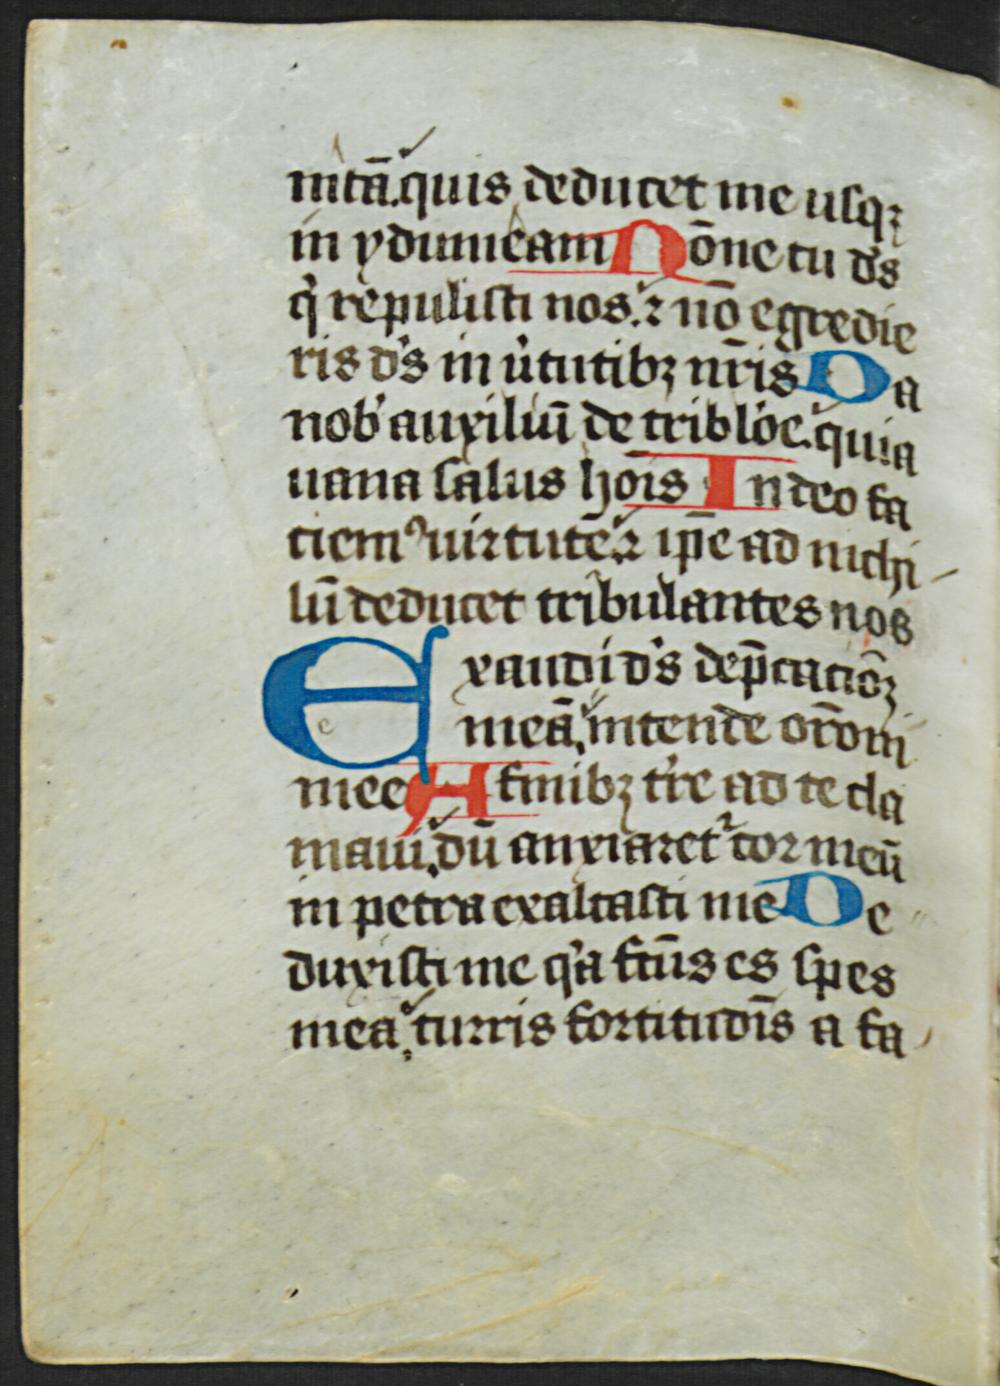 nitā. quis deducet me usqꝫ
in ydumeam Nōne tu dˢs
qͥ repulisti nos. ⁊ nō egredie
ris dˢs in uͥtutibꝫ nr̄is Da
nobˢ auxiliū de tribloͨe. quia
uana salus hoīs In deo fa
ciemꝰ uirtutē. ⁊ ip̄e ad nichi
lū deducet tribulantes nos
Exaudi dˢs dep̄cacōꝫ
meā, intende or̄oni
mee A finibꝫ tr̄e ad te cla
maui, dū anxiaretᷣ cor meū
in petra exaltasti me De
duxisti me qͥa fc̄us es spes
mea, turris fortitudīs a fa